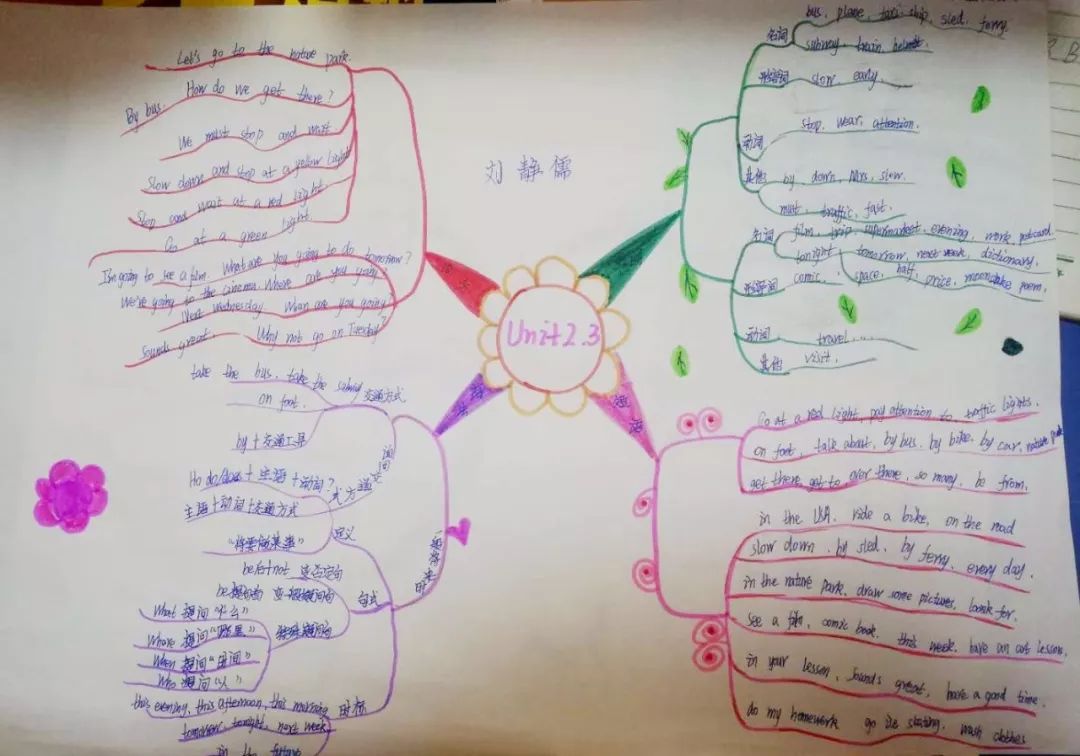 刘静儒
Unit2.3
Let's go to the nature park.
By bus. How do we get there?
We must stop and wait
Slow down and stop at a yellow light
Stop and wait at a red light.
Go at a green light.
I'm going to see a film. What are you going to do tomorrow?
We're going to the cinema. Where are you going?
Next Wednesday. When are you going
Sounds great. Why not go on Tuesday?
bus, plane, taxi, ship, sled, ferry,
名词
subway, train, helmet.
形容词 slow, early,
动词 stop, wear, attention.
其他 by, down, Mrs, slow.
must, traffic, fast.
名词 film, trip, supermarket, evening, work, postcard.
tonight, tomorrow, next week, dictionary,
形容词 comic, space, half, price, mooncake, poem,
动词 travel, ...
其他 visit,
短语
Go at a red light, pay attention to, traffic lights.
on foot, talk about, by bus, by bike, by car, nature park
get there, get to, over there, so many, be from,
in the USA, ride a bike, on the road
slow down, by sled, by ferry, every day,
in the nature park, draw some pictures, look for,
see a film, comic book, this week, have an art lesson,
in your lesson, sounds great, have a good time.
do my homework go ice-skating, wash clothes
take the bus, take the subway 交通方式
on foot.
by+交通工具
Ho do/does+主语+动词?
主语+动词+交通方式
询问交通方式
一般将来时
"将要做某事" 定义
be后+not 变否定句
句式
变一般疑问句
What 提问"什么"
Where 提问"哪里" 特殊疑问句
When 提问"时间"
Who 提问"人"
this evening, this afternoon, this morning 时标
tomorrow, tonight, next week
in the future